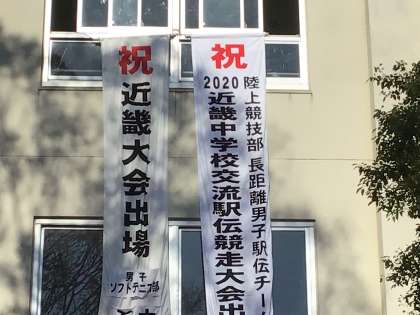 祝
2020
陸上競技部 長距離男子駅伝チーム
近畿中学校交流駅伝競走大会出
祝
近畿大会出場
男子
ソフトテニス部